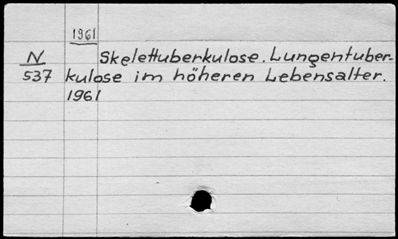 1961
N Skelettuberkulose. Lungentuber-
537 kulose im höheren Lebensalter.
1961